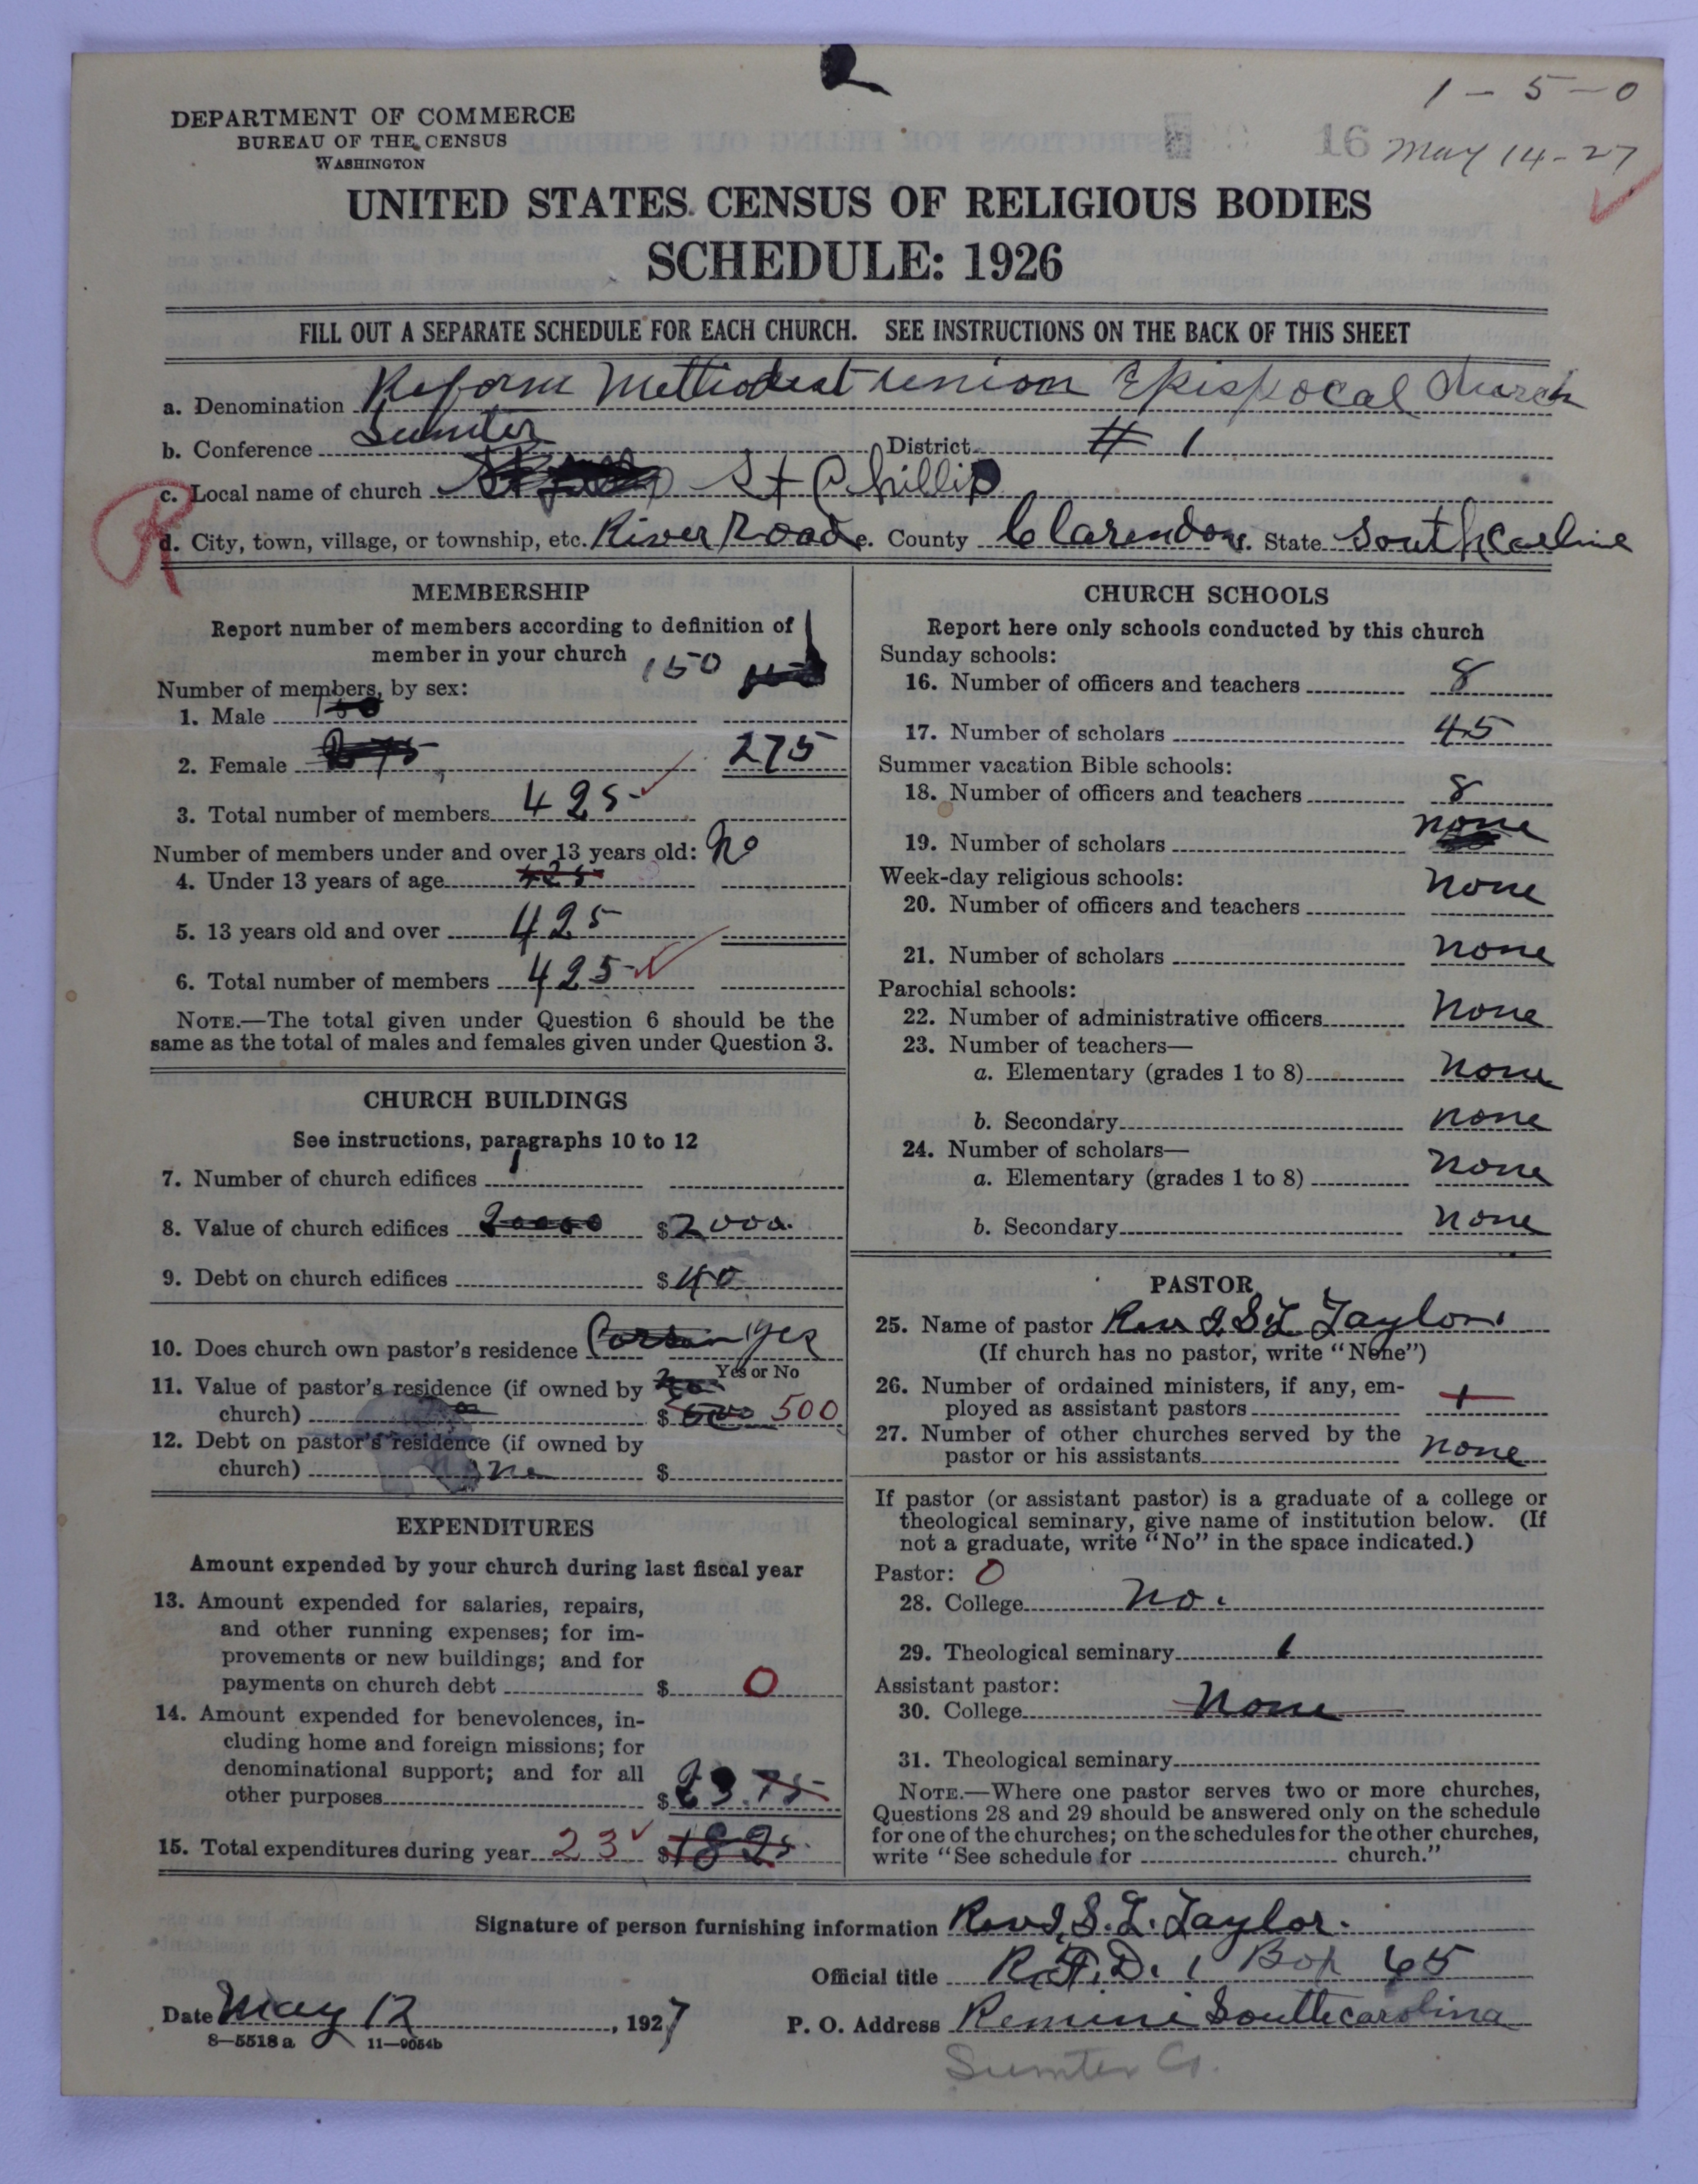 1-5-0
DEPARTMENT OF COMMERCE
BUREAU OF THE CENSUS
WASHINGTON
16 May 14-27
UNITED STATES CENSUS OF RELIGIOUS BODIES
SCHEDULE: 1926
FILL OUT A SEPARATE SCHEDULE FOR EACH CHURCH. SEE INSTRUCTIONS ON THE BACK OF THIS SHEET
a. Denomination Reform Methodest Union Epispocal Church
b. Conference Sumter District # 1
c. Local name of church St Phillip
R
d. City, town, village, or township, etc. River Road e. County Clarendon f. State South Carline
MEMBERSHIP
Report number of members according to definition of
member in your church
Number of members, by sex:
1. Male 150 150
2. Female 275 275
3. Total number of members 425
Number of members under and over 13 years old: no
4. Under 13 years of age 425
5. 13 years old and over 425
6. Total number of members 425
NOTE.—The total given under Question 6 should be the
same as the total of males and females given under Question 3.
CHURCH BUILDINGS
See instructions, paragraphs 10 to 12
7. Number of church edifices 1
8. Value of church edifices 20000 $2000.
9. Debt on church edifices $40
10. Does church own pastor's residence yes
Yes or No
11. Value of pastor's residence (if owned by
church) $500 500
12. Debt on pastor's residence (if owned by
church) none $
EXPENDITURES
Amount expended by your church during last fiscal year
13. Amount expended for salaries, repairs,
and other running expenses; for im-
provements or new buildings; and for
payments on church debt $ 0
14. Amount expended for benevolences, in-
cluding home and foreign missions; for
denominational support; and for all
other purposes $23.75
15. Total expenditures during year 23 $1825
CHURCH SCHOOLS
Report here only schools conducted by this church
Sunday schools:
16. Number of officers and teachers 8
17. Number of scholars 45
Summer vacation Bible schools:
18. Number of officers and teachers 8
19. Number of scholars none
Week-day religious schools:
20. Number of officers and teachers none
21. Number of scholars none
Parochial schools:
22. Number of administrative officers none
23. Number of teachers—
a. Elementary (grades 1 to 8) none
b. Secondary none
24. Number of scholars—
a. Elementary (grades 1 to 8) none
b. Secondary none
PASTOR
25. Name of pastor Rev I. S. L. Taylor.
(If church has no pastor, write "None")
26. Number of ordained ministers, if any, em-
ployed as assistant pastors 1
27. Number of other churches served by the
pastor or his assistants none
If pastor (or assistant pastor) is a graduate of a college or
theological seminary, give name of institution below. (If
not a graduate, write "No" in the space indicated.)
Pastor: 0
28. College no.
29. Theological seminary 1
Assistant pastor:
30. College None
31. Theological seminary
NOTE.—Where one pastor serves two or more churches,
Questions 28 and 29 should be answered only on the schedule
for one of the churches; on the schedules for the other churches,
write "See schedule for church."
Signature of person furnishing information Rev I, S. L. Taylor.
Official title R.F.D. 1 Box 65
Date May 12, 1927 P. O. Address Remini South carolina
8—5518 a 11—9054b
Sumter Co.